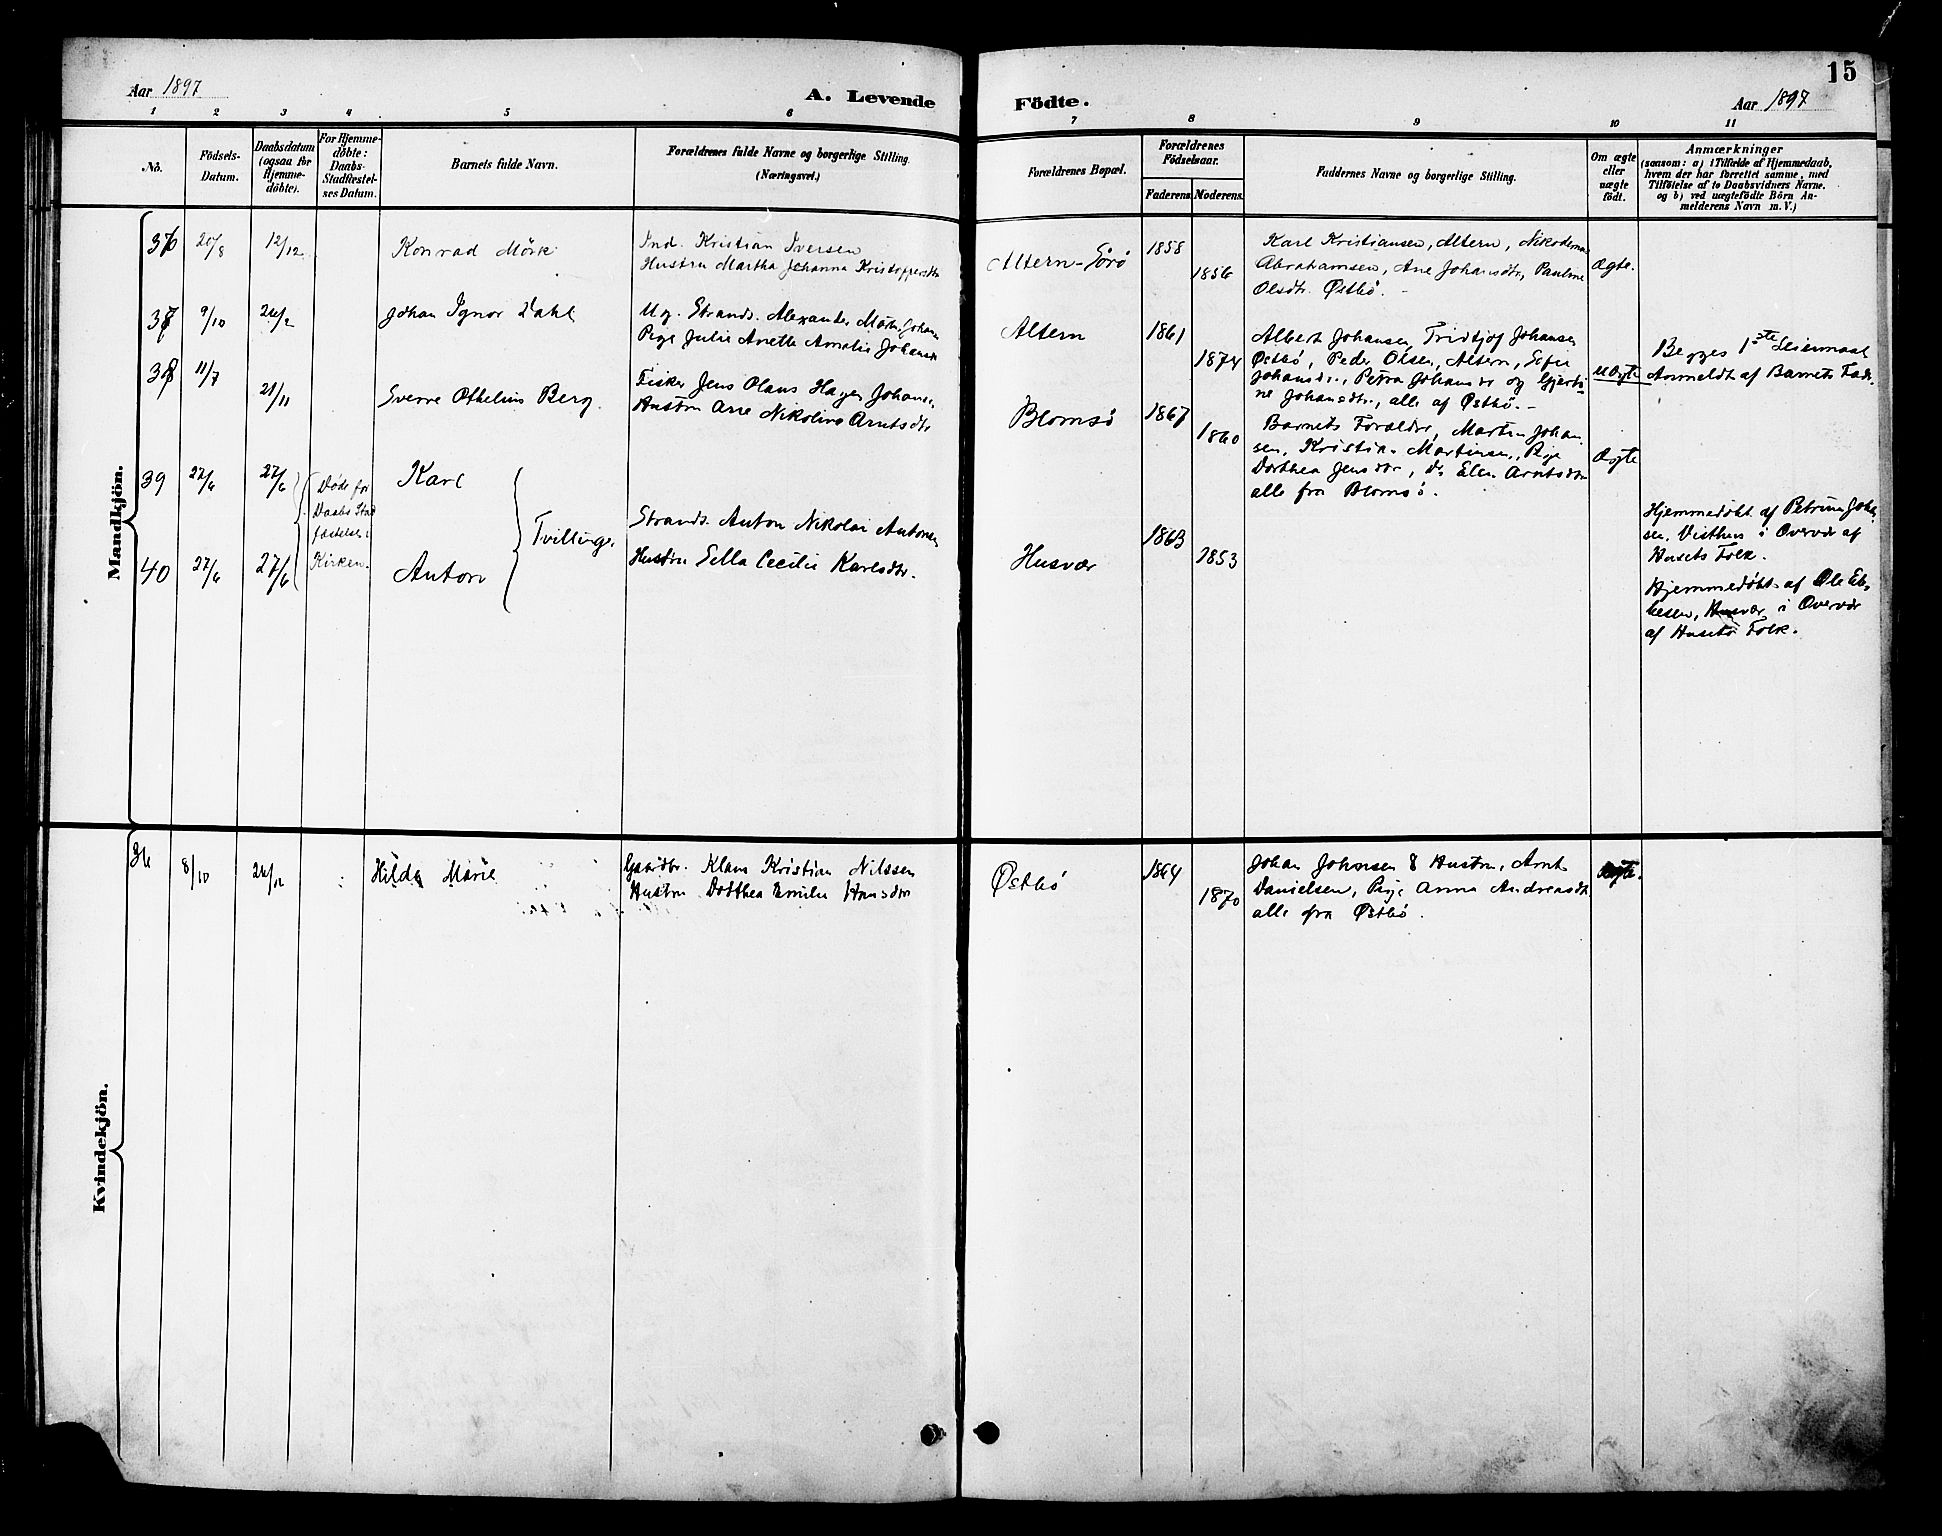 Aar 1897
A. Levende
Födte.
Aar 1897
15
1 2 3 4 5 6 7 8 9 10 11
No.
Födsels-
Datum.
Daabsdatum
(ogsaa for
Hjemme-
döbte).
For Hjemme-
döbte:
Daabs-
Stadfæstel-
ses Datum.
Barnets fulde Navn.
Forældrenes fulde Navne og borgerlige Stilling.
(Næringsvei.)
Forældrenes Bopæl.
Forældrenes
Födselsaar.
Faderens.
Moderens.
Faddernes Navne og borgerlige Stilling.
Om ægte
eller
uægte
födt.
Anmærkninger
(saasom: a) i Tilfælde af Hjemmedaab,
hvem der har forrettet samme, med
Tilföielse af to Daabsvidners Navne,
og b) ved uægtefödte Börn An-
melderens Navn m. V.)
Mandkjön.
36 20/8 12/12 Konrad Mörk
Ind. Kristian Iversen
Hustru Martha Johanna Kristoffersdtr
Altern-Sörö
1858
1856
Karl Kristiansen, Altern, Nikodemus
Abrahamsen, Ane Johansdtr, Pauline
Olsdtr. Østbö.
Ægte.
37 9/10 26/12 Johan Ignor Dahl
Ug. Strands. Alexander Mörk Johans
Pige Julie Anette Amalie Johansd
Altern
1861
1874
Albert Johansen, Fridtjof Johansen
Østbö, Peder Olsen, Altern, Sofie
Johansdr., Petra Johansdr og Gjerti-
ne Johansdtr., alle af Østbö.
Uægte
Begges 1ste Leiermaal
Anmeldt af Barnets Fader
38 11/7 21/11 Sverre Othelius Berg.
Fisker Jens Olaus Hagen Johans.
Hustru Ane Nikoline Arntsdtr
Blomsö
1867
1860
Barnets Forældre, Marten Johan
sen, Kristian Martinsen, Pige
Dorthea Jensdtr, do Elen Arntsdtr
alle fra Blomsö.
Ægte
39 27/6 27/6 Karl
Døde før
Daabs Stad
fæstelse i
Kirken.
Tvillinger
Strands. Anton Nikolai Antonsen
Hustru Sella Cecilie Karlsdtr.
Husvær
1863
1853
Hjemmedøbt af Petrine Joha
sen, Visthus i Overvær af
Husets Folk.
40 27/6 27/6 Anton
Hjemmedøbt af Ole Eb-
besen, Husvær i Overvær
af Husets Folk.
Kvindekjön.
36 8/10 26/12 Hilda Marie
Gaardbr. Klaus Kristian Nilssen
Hustru Dorthea Emilie Hansdtr
Østbö
1864
1870
Johan Johansen & Hustru, Arnt
Danielsen, Pige Anna Andreasdtr.
alle fra Østbö.
Ægte.